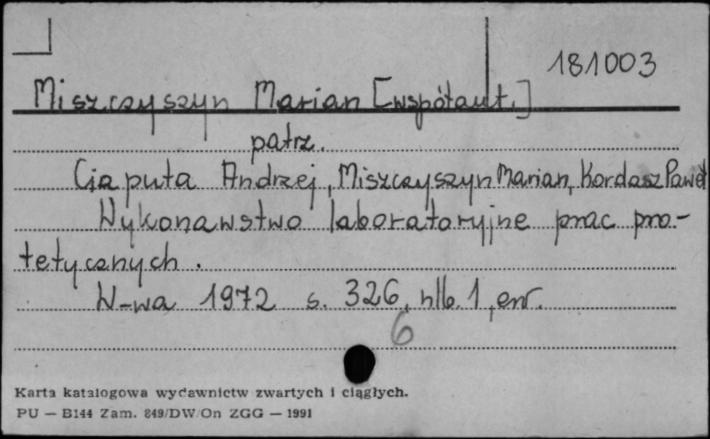 181003
Miszczyszyn Marian [współaut.]
patrz.
Ciaputa Andrzej, Miszczyszyn Marian, Kordasz Paweł
Wykonawstwo laboratoryjne prac pro-
tetycznych.
W-wa 1972 s. 326, nlb. 1, err.
6
Karta katalogowa wydawnictw zwartych i ciągłych.
PU — B144 Zam. 849/DW/On ZGG — 1991